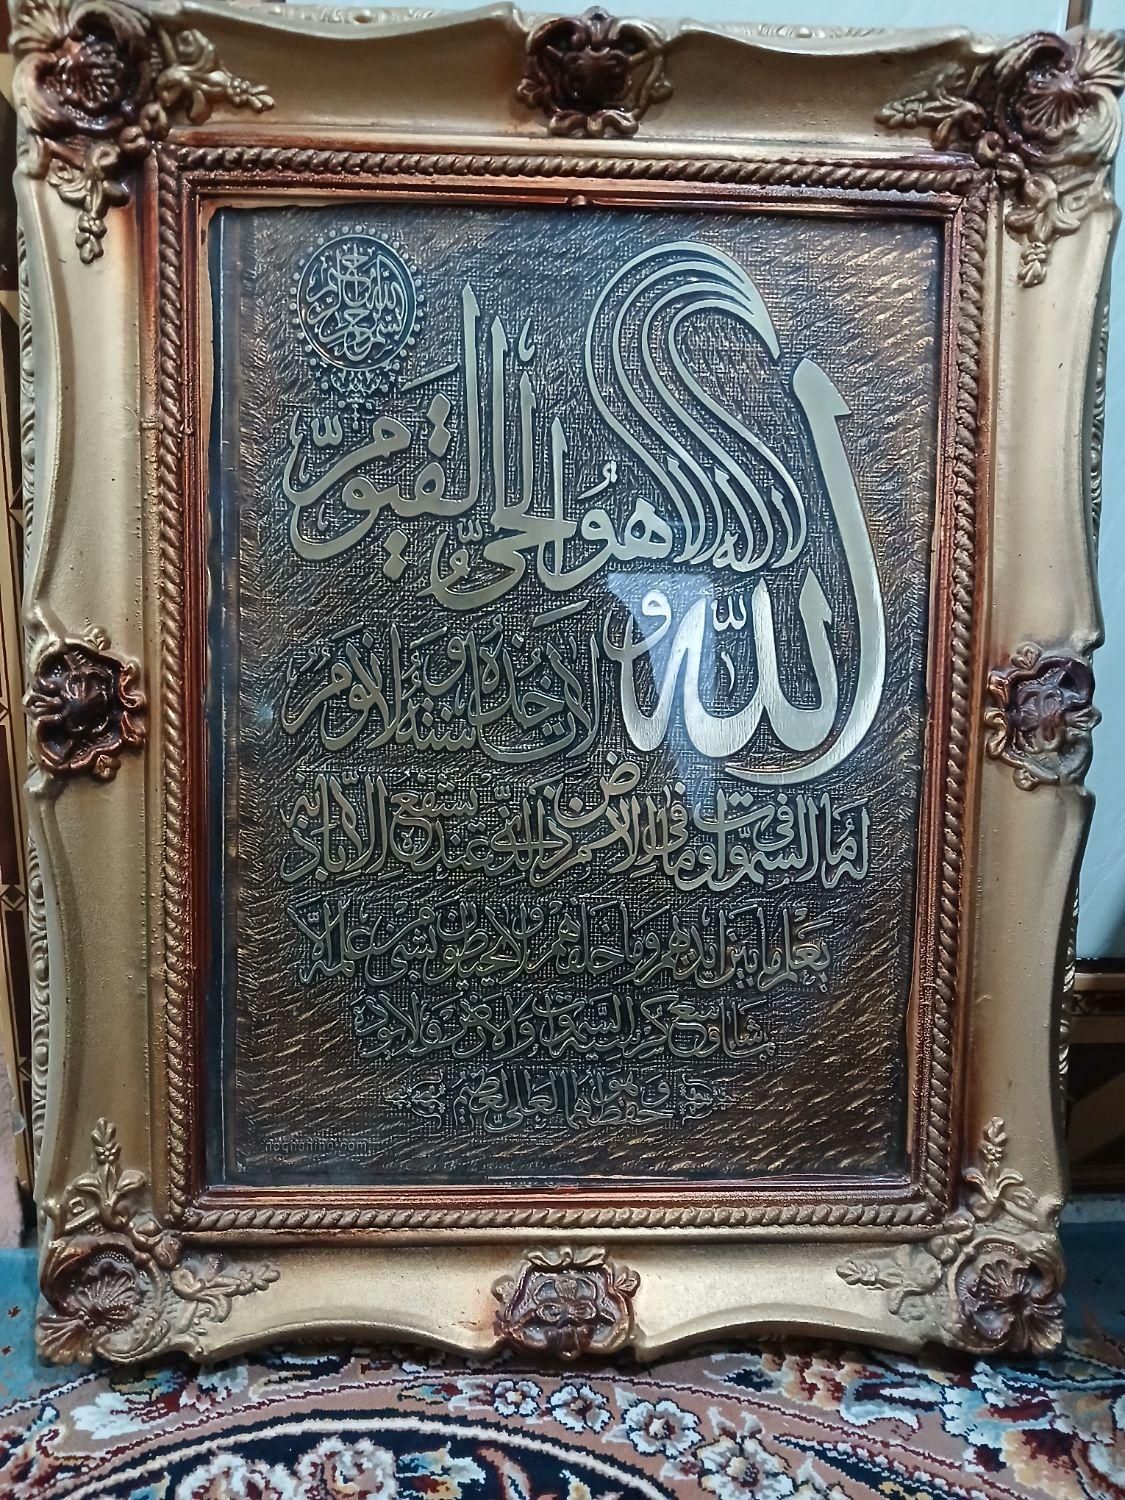 بسم الله الرحمن الرحیم
الله لا اله الا هُو الحیُّ القیّوم
لا تاخذه سنة و لا نوم
له ما فی السموات و ما فی الارض من ذا الذی یشفع عنده الا باذنه
یعلم ما بین ایدیهم و ما خلفهم و لا یحیطون بشیء من علمه الا
بما شاء وسع کرسیه السموات و الارض و لا یؤده
حفظهما و هو العلی العظیم